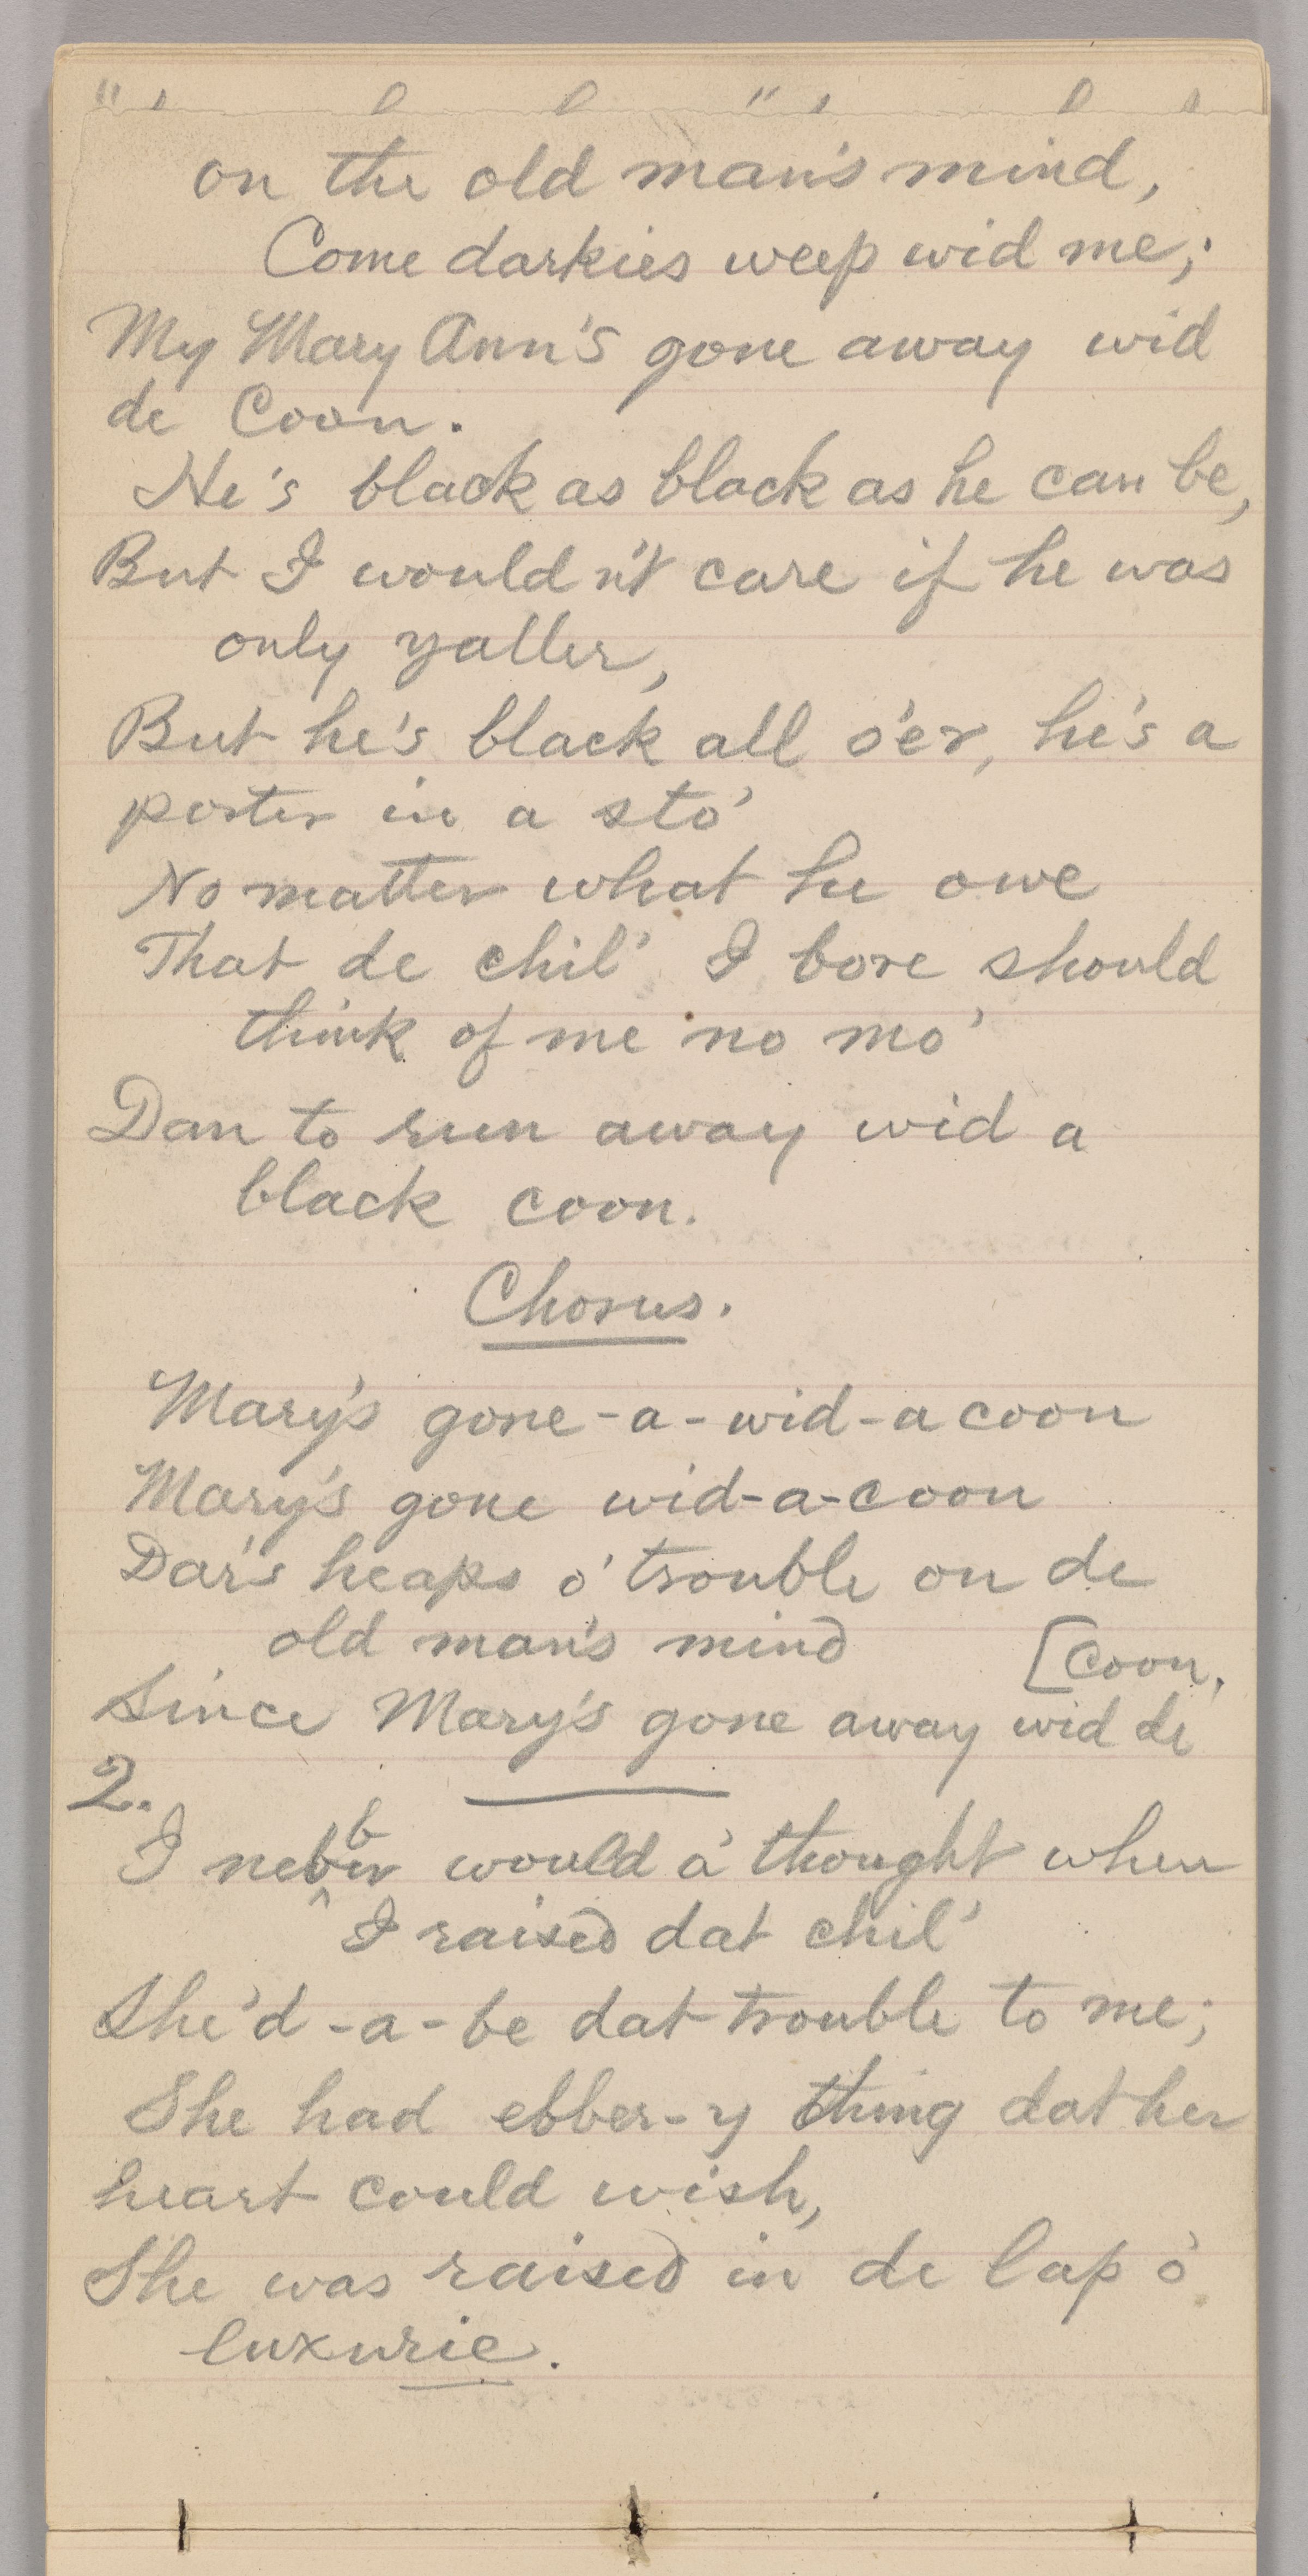 on the old man's mind,
Come darkies weep wid me;
My Mary Ann's gone away wid
de Coon.
He's black as black as he can be,
But I wouldn't care if he was
only yaller,
But he's black all o'er, he's a
porter in a sto'
No matter what he owe
That de chil' I bore should
think of me no mo'
Dan to run away wid a
black coon.
Chorus.
Mary's gone-a-wid-a coon
Mary's gone wid-a-coon
Dar's heaps o' trouble on de
old man's mind
[Coon,
Since Mary's gone away wid de
2.
I nebber would a' thought when
I raised dat chil'
She'd-a-be dat trouble to me;
She had ebber-y thing dat her
heart could wish,
She was raised in de lap o'
luxurie.